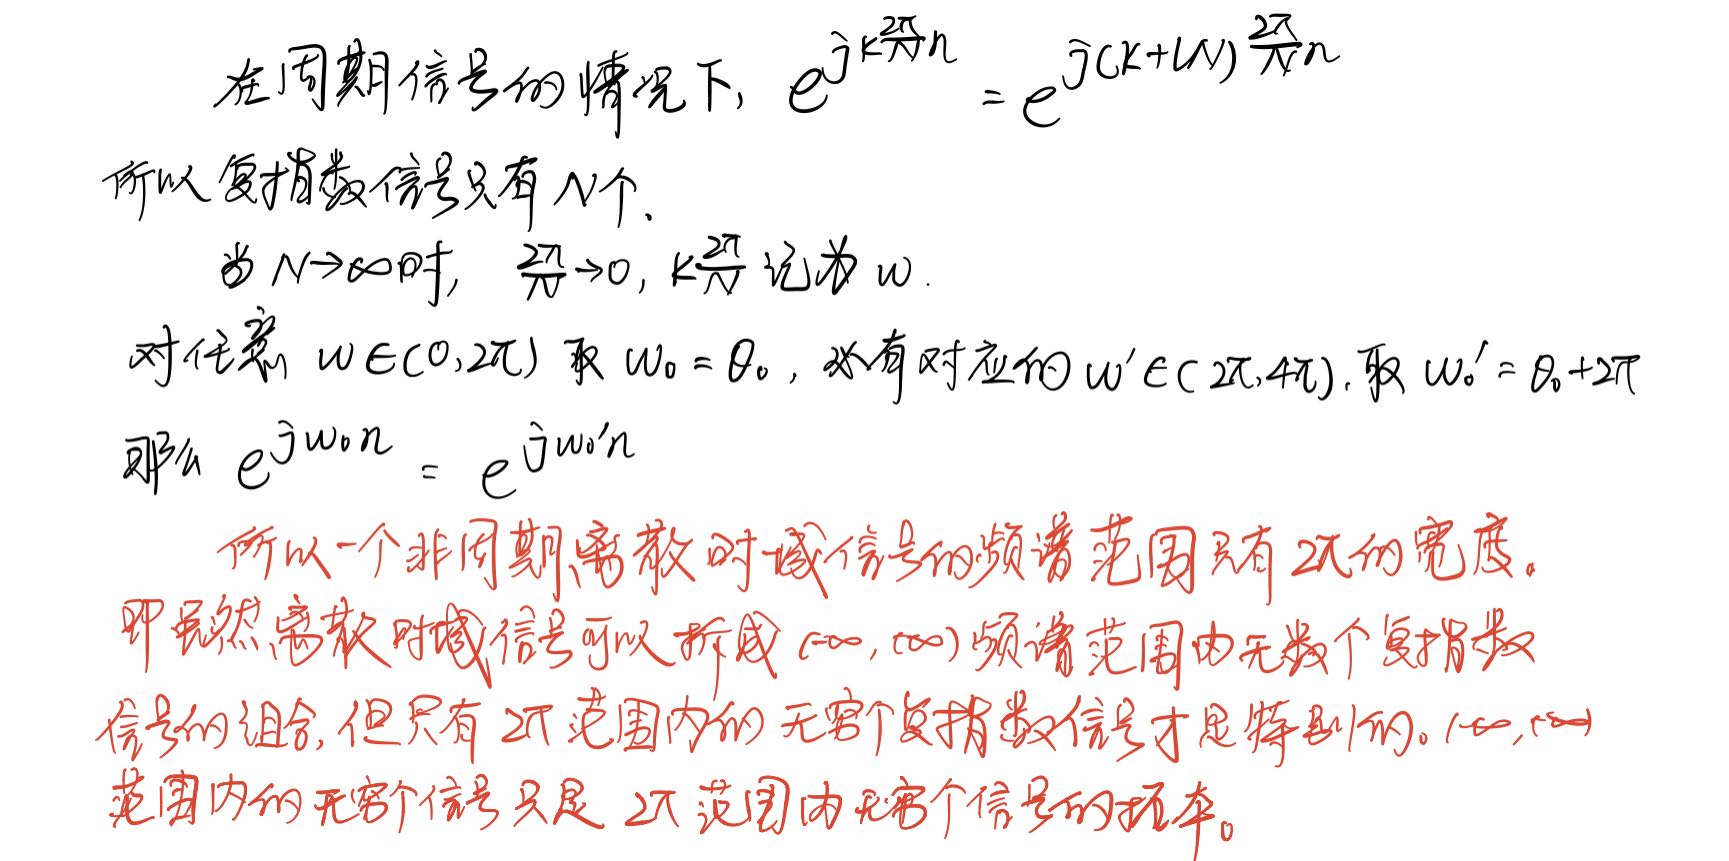 在周期信号的情况下, e^{jk\frac{2π}{N}n} = e^{j(k+lN)\frac{2π}{N}n}
所以复指数信号只有N个.
当N→∞时, \frac{2π}{N}→0, k\frac{2π}{N}记为w.
对任意w∈(0,2π)取w₀=θ₀, 必有对应的w'∈(2π,4π).取w₀'=θ₀+2π
那么 e^{jw₀n} = e^{jw₀'n}
所以一个非周期离散时域信号的频谱范围只有2π的宽度。
即虽然离散时域信号可以拆成(-∞,+∞)频谱范围内无数个复指数
信号的组合,但只有2π范围内的无穷个复指数信号才是特别的。(-∞,+∞)
范围内的无穷个信号只是2π范围内无穷个信号的拓本。